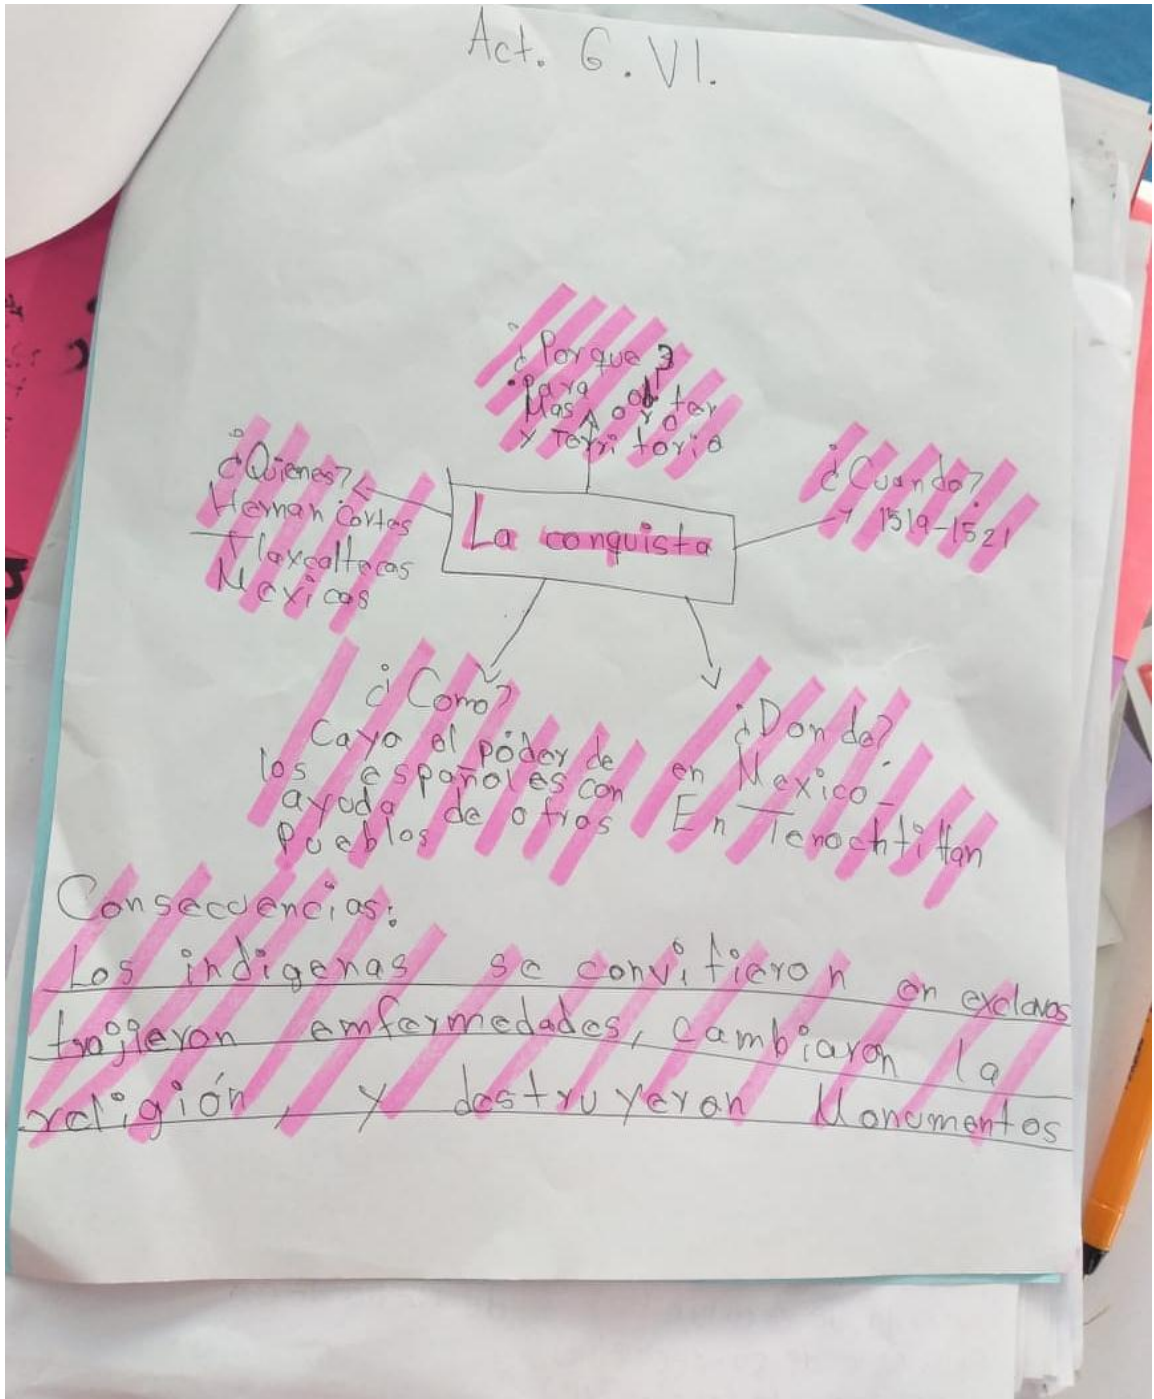 Act. 6. VI.
¿Porque?
•Para
Mas oro
y Territorio
¿Quienes?
Hernan Cortes
Tlaxcaltecas
Mexicas
La conquista
¿Cuando?
1519-1521
¿Como?
Cayo el poder de
los españoles con
ayuda de otros
Pueblos
¿Donde?
en Mexico-
En Tenochtitlan
Consecuencias:
Los indigenas se convitieron en exclavos
trajieron enfermedades, cambiaron la
religión, y destruyeron Monumentos